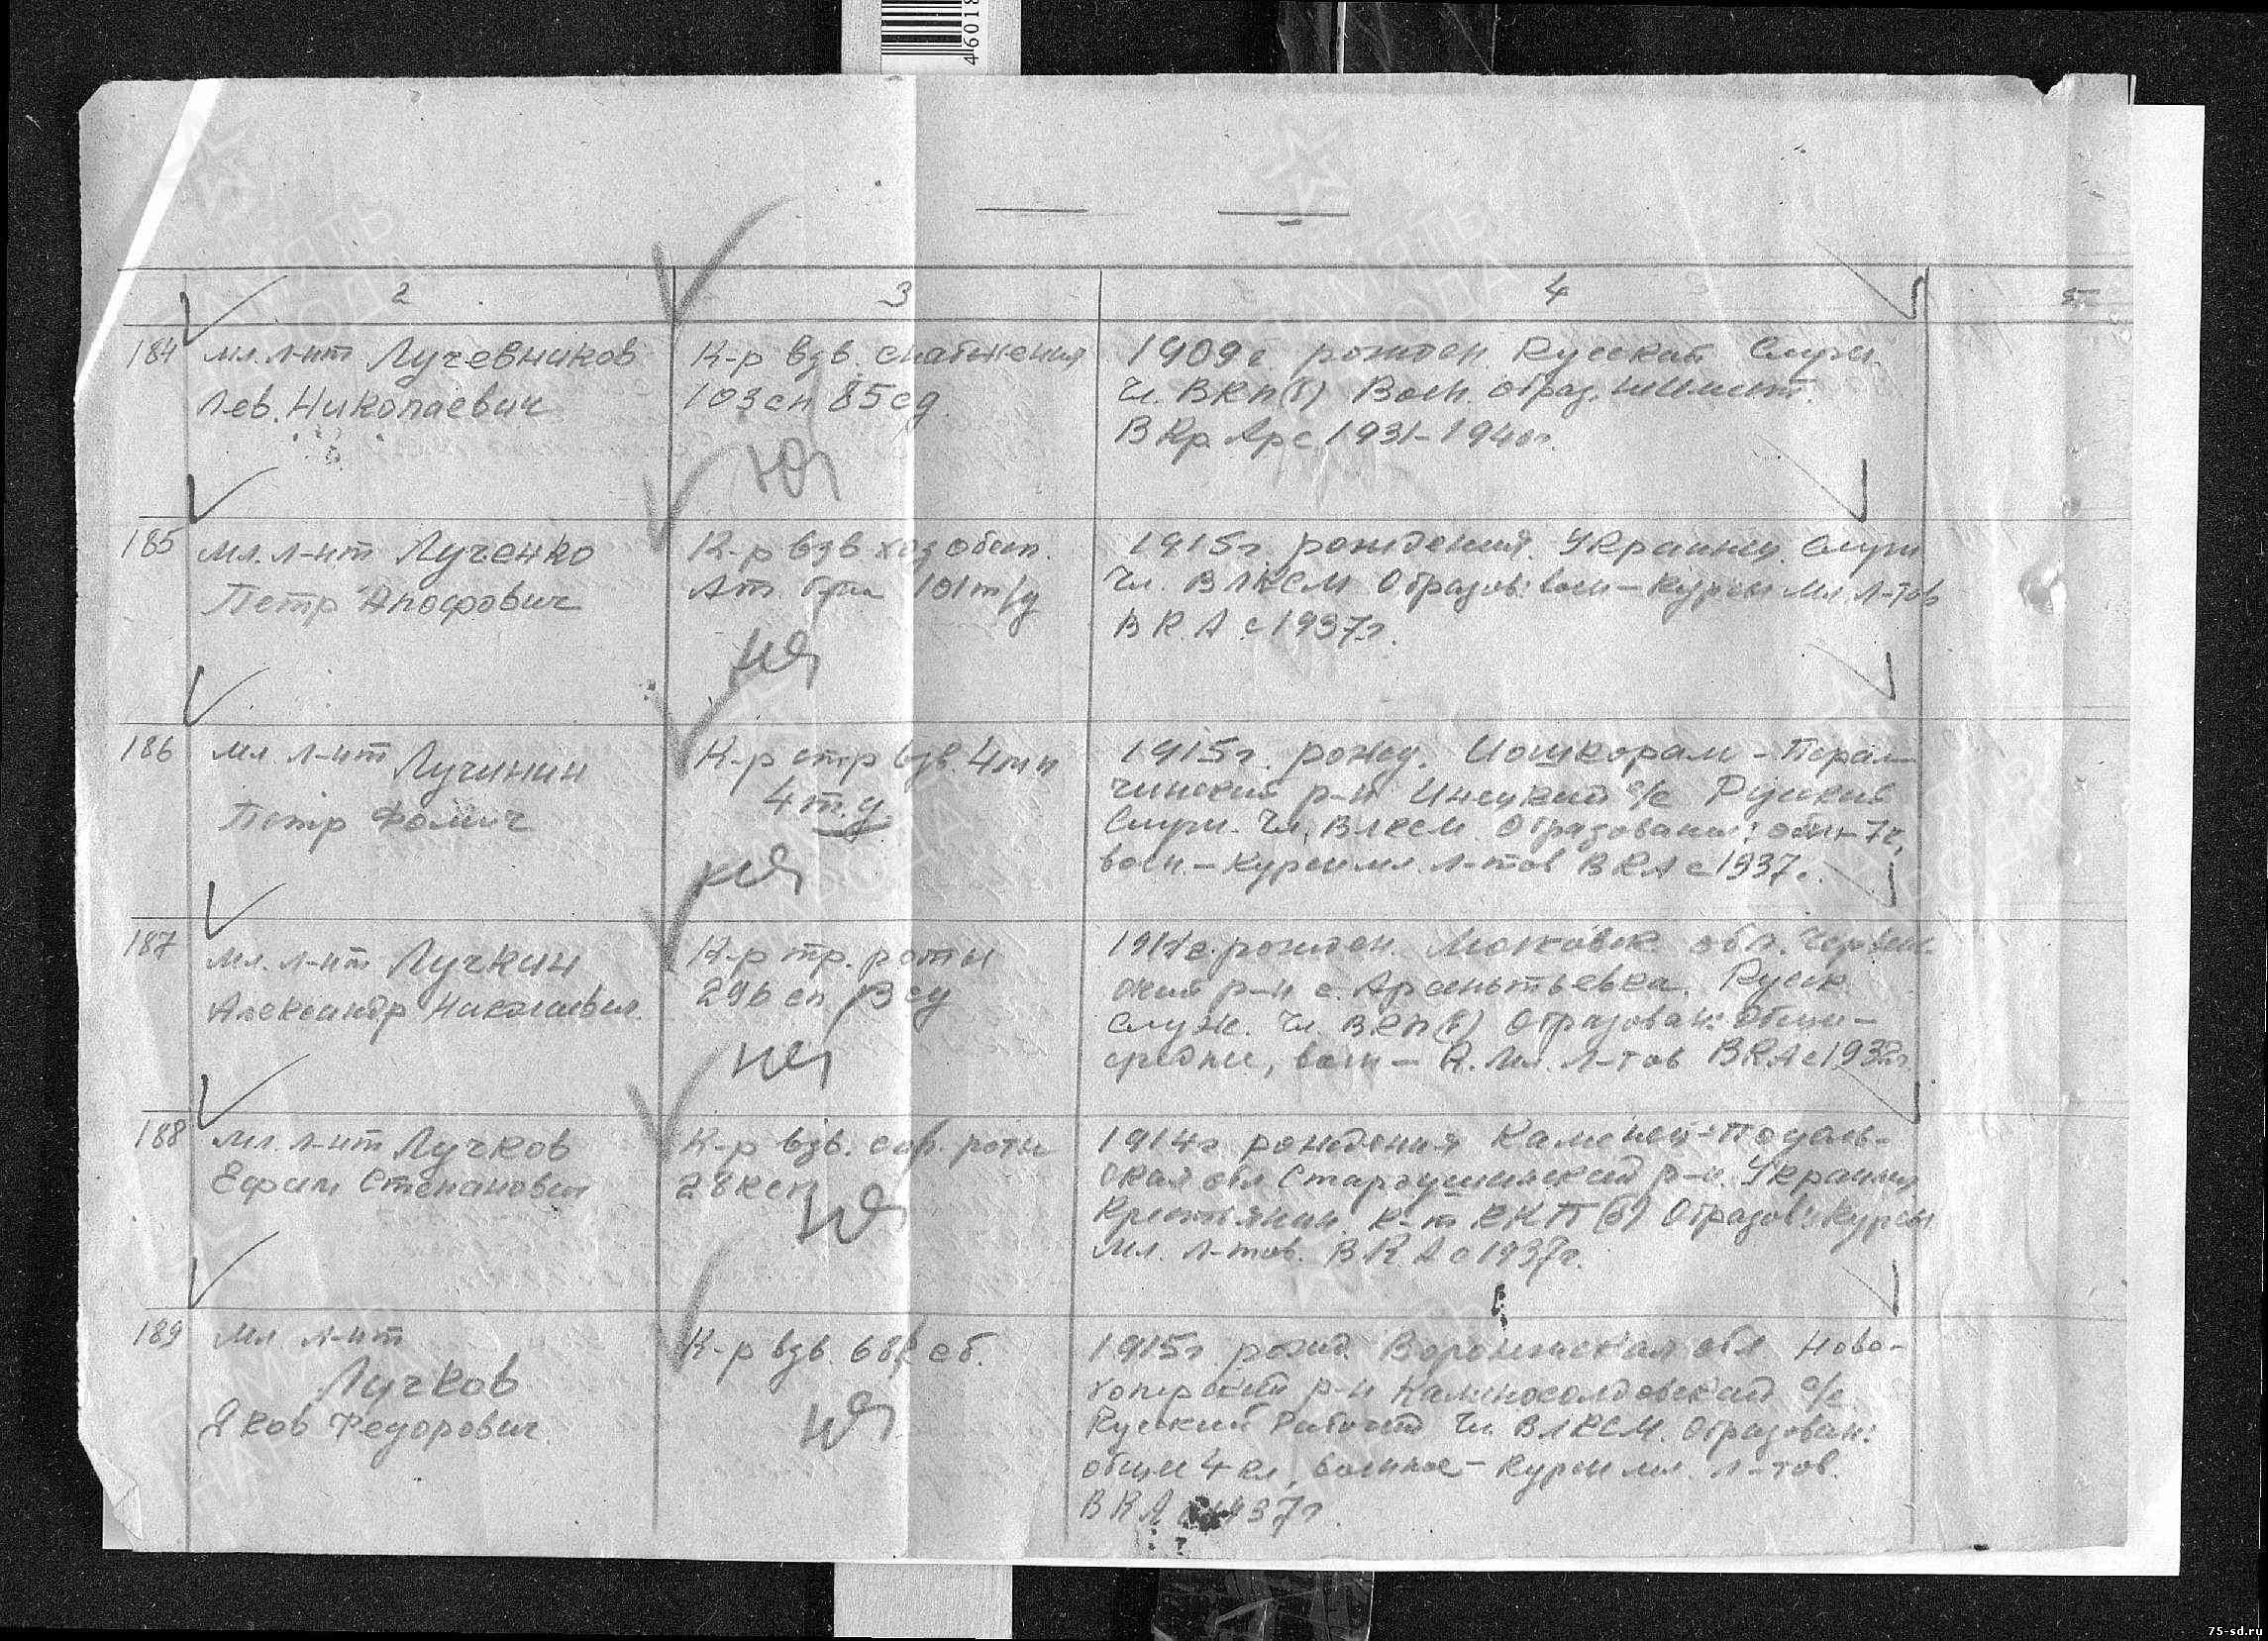 46018
2 3 4 5
184 мл. л-нт Лучевников
Лев. Николаевич
К-р взв. снабжения
103 сп 85 сд.
1909 г. рожден. Русский Служ.
Чл. ВКП(б) Воен. образ.
В Кр Ар с 1931-1940 г.
185 мл. л-нт Лученко
Петр
К-р взв. хоз обсл.
101 т/д
1915 г рождения. Украинец. Служ.
Чл. ВЛКСМ Образов: воен - курсы мл. л-тов
В К.А с 1937 г.
186 мл. л-нт Лучинин
Петр Фомич
К-р стр взв. 4 мп
4 т.д.
1915 г. рожд.
р-н с/с Русский
Служ. Чл. ВЛКСМ. Образование: общ - 7 к,
воен. - курсы мл. л-тов В КА с 1937 г.
187 мл. л-нт Лучкин
Александр Николаевич.
К-р тр. роты
296 сп 13 сд
рожден. Московск. обл.
р-н с. Русск.
Служ. Чл. ВКП(б) Образован: Общее -
среднее, воен - К. мл. л-тов В КА с 1932 г.
188 мл. л-нт Лучков
Ефим Степанович
К-р взв. сап. роты
28 ксп
1914 г рождения Каменец-Подоль-
ская обл р-н. Украинец
Крестьянин. к-т ВКП(б) Образов: курсы
мл. л-тов. В К А с 1937 г.
189 мл. л-нт
Лучков
Яков Федорович.
К-р взв. 68 сб.
1915 г. рожд. Воронежская обл Ново-
хоперский р-н с/с
Русский Рабочий Чл. ВЛКСМ. Образован:
общее 4 кл, военное - курсы мл. л-тов.
В К А с 1937 г.
ПАМЯТЬ
НАРОДА
75-sd.ru